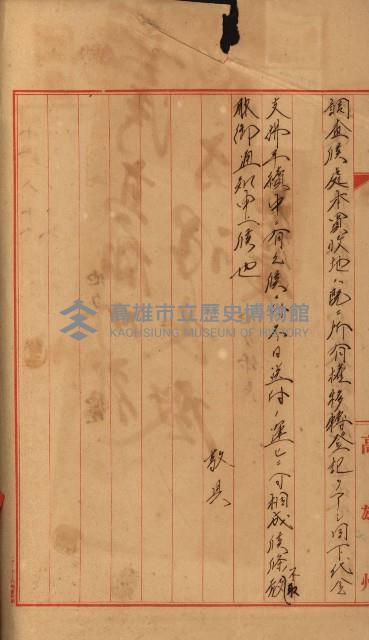 調査候處本買收地ハ既ニ所有權移轉登記ヲ了シ目下代金
支拂手續中ニ有之候
今日送付ノ運ビニ可相成候條
不取
敢御通知申上候也
敬具
高雄州
高雄市立歷史博物館
KAOHSIUNG MUSEUM OF HISTORY